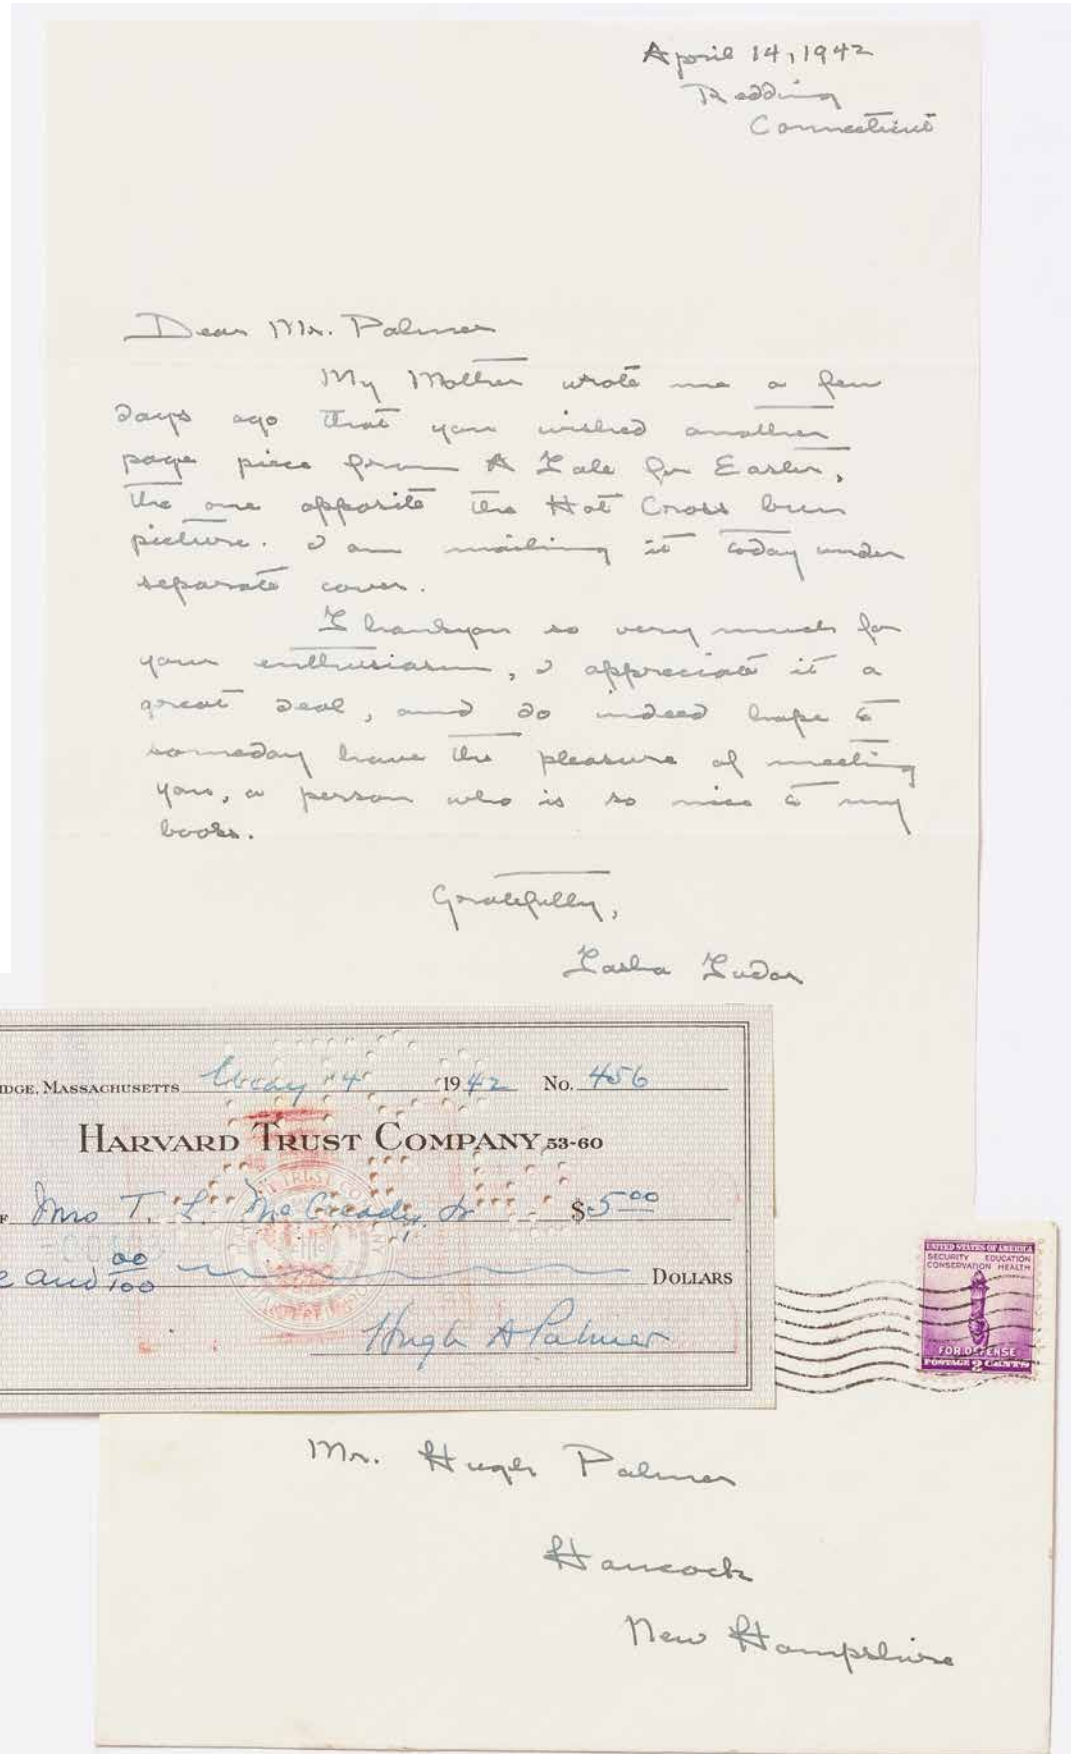 April 14, 1942
Redding
Connecticut
Dear Mr. Palmer
My Mother wrote me a few
days ago that you wished another
page piece from A Tale for Easter,
the one opposite the Hot Cross bun
picture. I am mailing it today under
separate cover.
Thankyou so very much for
your enthusiasm, I appreciate it a
great deal, and do indeed hope to
someday have the pleasure of meeting
you, a person who is so nice to my
books.
Gratefully,
Tasha Tudor
IDGE, MASSACHUSETTS May 4 1942 No. 456
HARVARD TRUST COMPANY 53-60
F Mrs T. L. McCready, Jr $5 00
e and 00/100 DOLLARS
Hugh A Palmer
UNITED STATES OF AMERICA
SECURITY EDUCATION
CONSERVATION HEALTH
FOR DEFENSE
POSTAGE 3 CENTS
Mr. Hugh Palmer
Hancock
New Hampshire